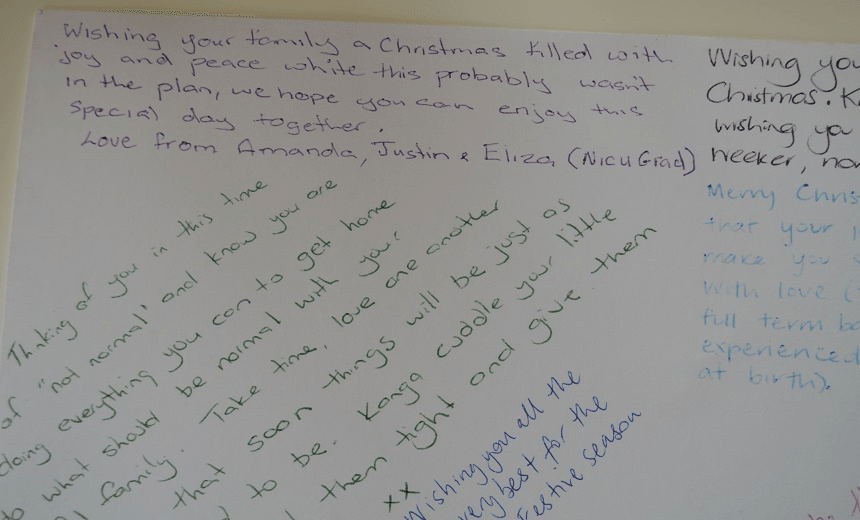 Wishing your family a Christmas filled with
joy and peace while this probably wasn't
in the plan, we hope you can enjoy this
special day together.
Love from Amanda, Justin & Eliza (NICU Grad)
Thinking of you in this time
of "not normal" and know you are
doing everything you can to get home
to what should be normal with your
family. Take time, love one another
that soon things will be just as
to be. Kanga cuddle your little
them tight and give them
xx
Wishing you all the
very best for the
Festive season
Wishing you
Christmas.
wishing yo
weeker, no
Merry Chris
that your
make you
With love
full term ba
experienced
at birth).